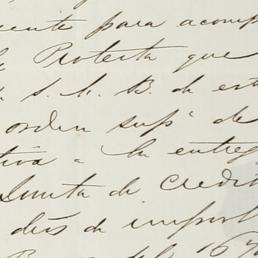 para acomp
Protesta que
S. M. B. de est
orden supª de
tiva a la entreg
Junta de Credit
dios de import